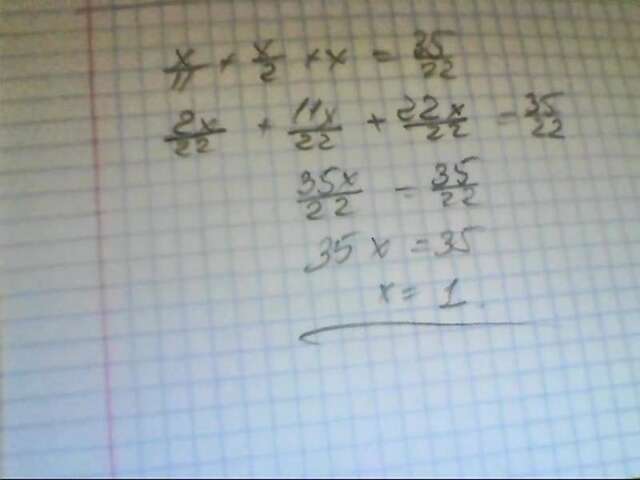 x/11 + x/2 + x = 35/22
2x/22 + 11x/22 + 22x/22 = 35/22
35x/22 = 35/22
35x = 35
x = 1